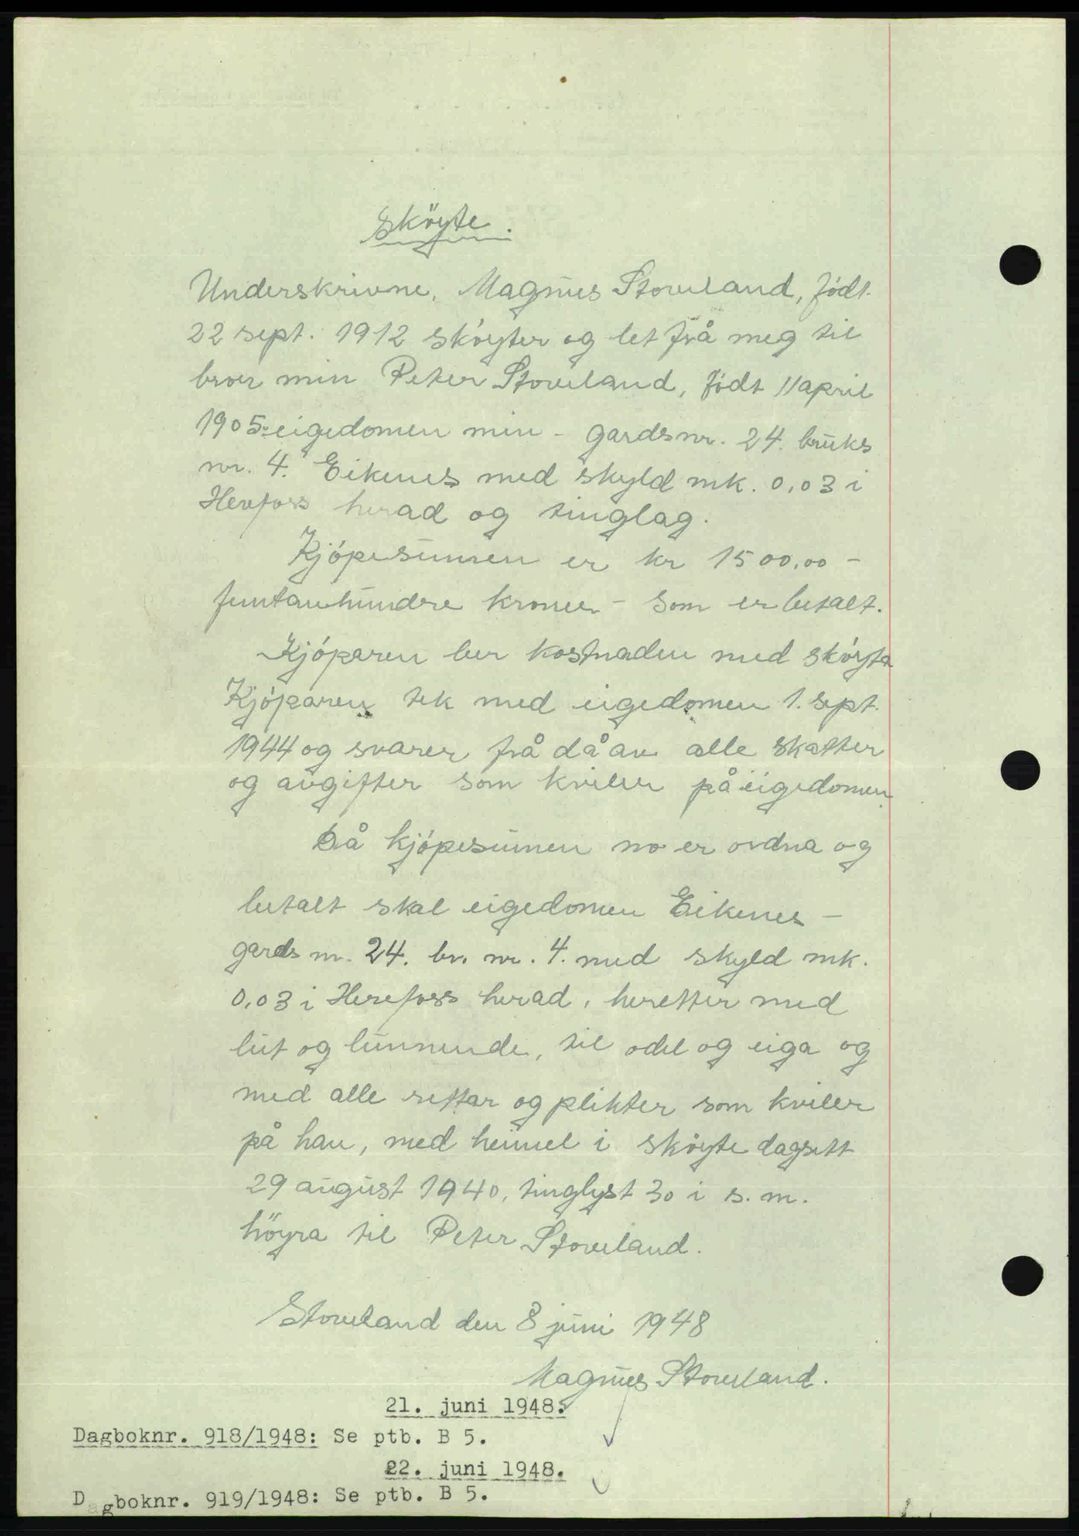 Sköyte.
Underskrivne, Magnus Stoveland, född
22 sept. 1912 sköyter og let frå meg til
bror min Peter Stoveland, född 11 april
1905 - eigedomen min - gardsnr. 24. bruks
nr. 4. Eikenes med skyld mk. 0,03 i
Herefoss herad og tinglag.
Kjöpesumen er kr 1500,00 -
femtanhundre kroner - som er betalt.
Kjöparen ber kostnaden med sköyta
Kjöparen tek med eigedomen 1. sept.
1944 og svarer frå då av alle skatter
og avgifter som kviler på eigedomen.
Då kjöpesumen no er ordna og
betalt skal eigedomen Eikenes -
gards nr. 24. br. nr. 4. med skyld mk.
0,03 i Herefoss herad, heretter med
lut og lunnende, til odel og eiga og
med alle rettar og plikter som kviler
på han, med heimel i sköyte dagsett
29 august 1940, tinglyst 30 i s. m.
höyra til Peter Stoveland.
Stoveland den 8 juni 1948
Magnus Stoveland.
21. juni 1948.
Dagboknr. 918/1948: Se ptb. B 5.
22. juni 1948.
Dagboknr. 919/1948: Se ptb. B 5.